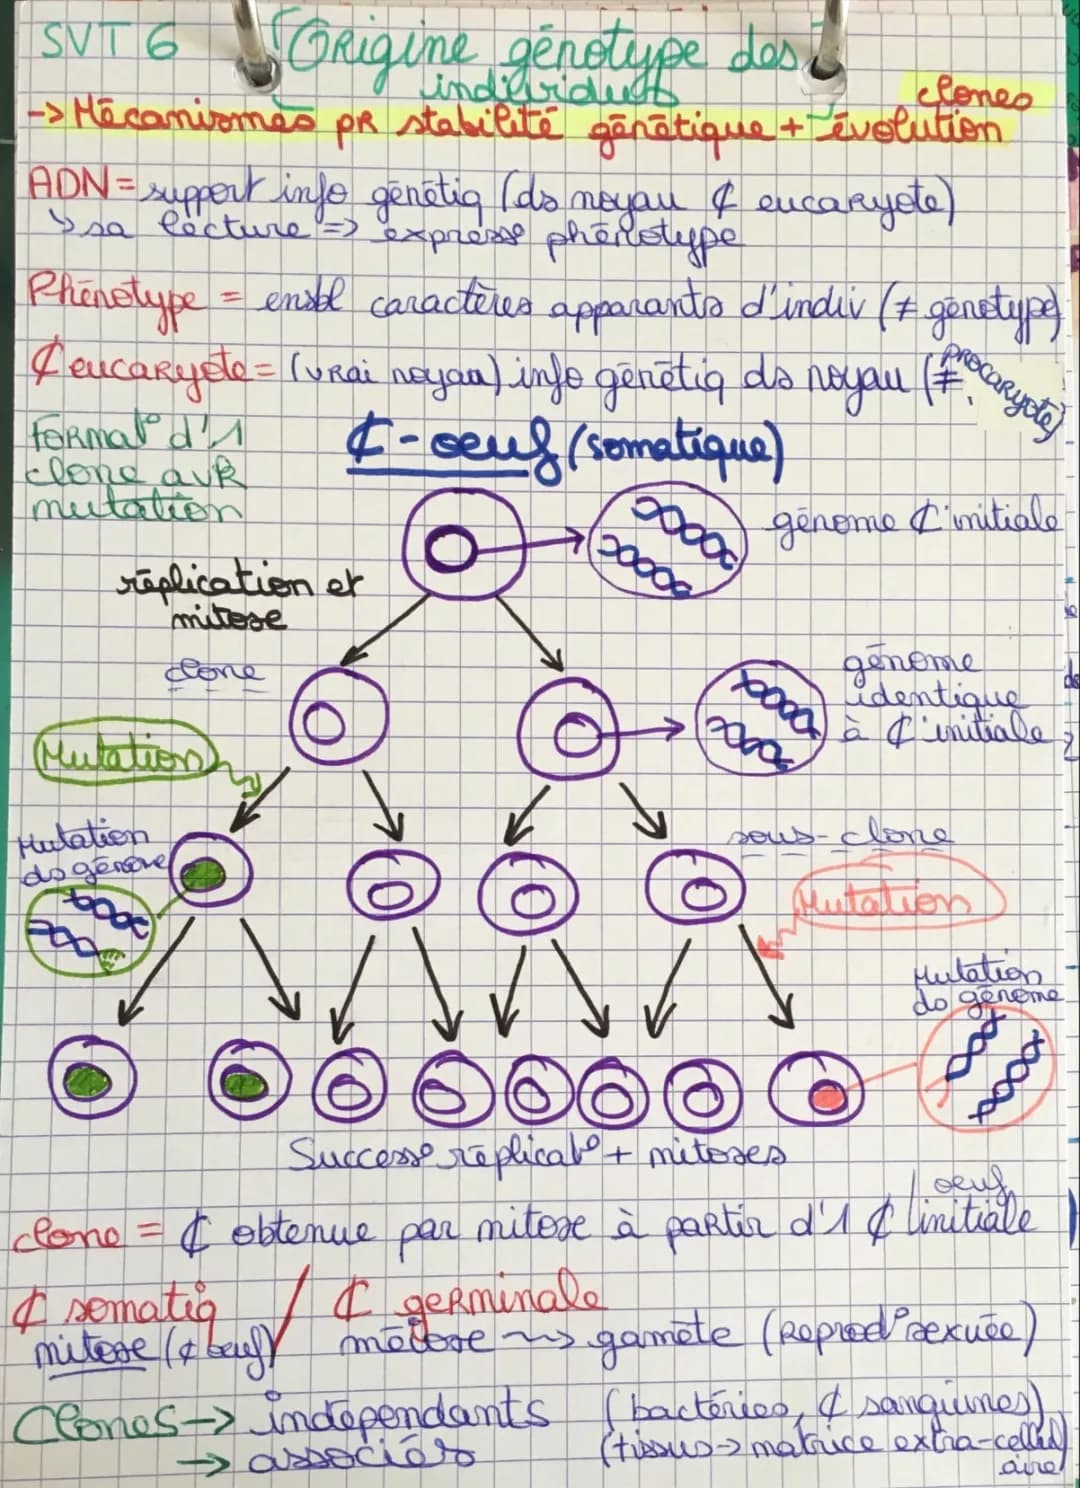 SVT 6 Origine génotype des
individus
clones
-> Mécanismes pR stabilité génétique + évolution
ADN = support info génétiq (ds noyau ₵ eucaryote)
↳ sa lecture => expresso phénotype
Phénotype = ensbl caractères apparants d'indiv (≠ génotype)
₵ eucaryote = (vrai noyau) info génétiq ds noyau (≠ procaryote)
Format° d'1
clone avR
mutation
₵-oeuf (somatique)
génome ₵ initiale
réplication et
mitose
clone
génome
identique
à ₵ initiale
Mutation
Mutation
ds génome
sous-clone
Mutation
Mutation
ds génome
Success° réplicat° + mitoses
oeuf
clone = ₵ obtenue par mitose à partir d'1 ₵ initiale
₵ somatiq / ₵ germinale
mitose (₵ oeuf) méiose ~> gamète (Reprod° sexuée)
Clones -> indépendants (bactéries, ₵ sanguines)
-> associés (tissus -> matrice extra-cellul
aire)